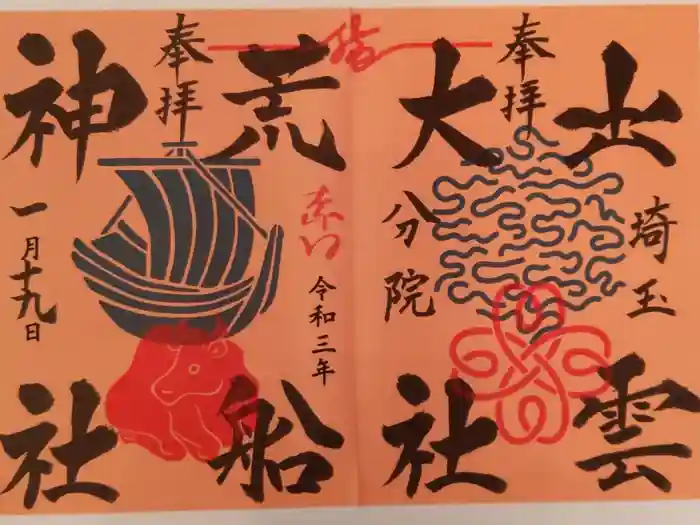 奉拝
出雲
大社
埼玉
分院
奉拝
荒船
神社
令和三年
一月十九日